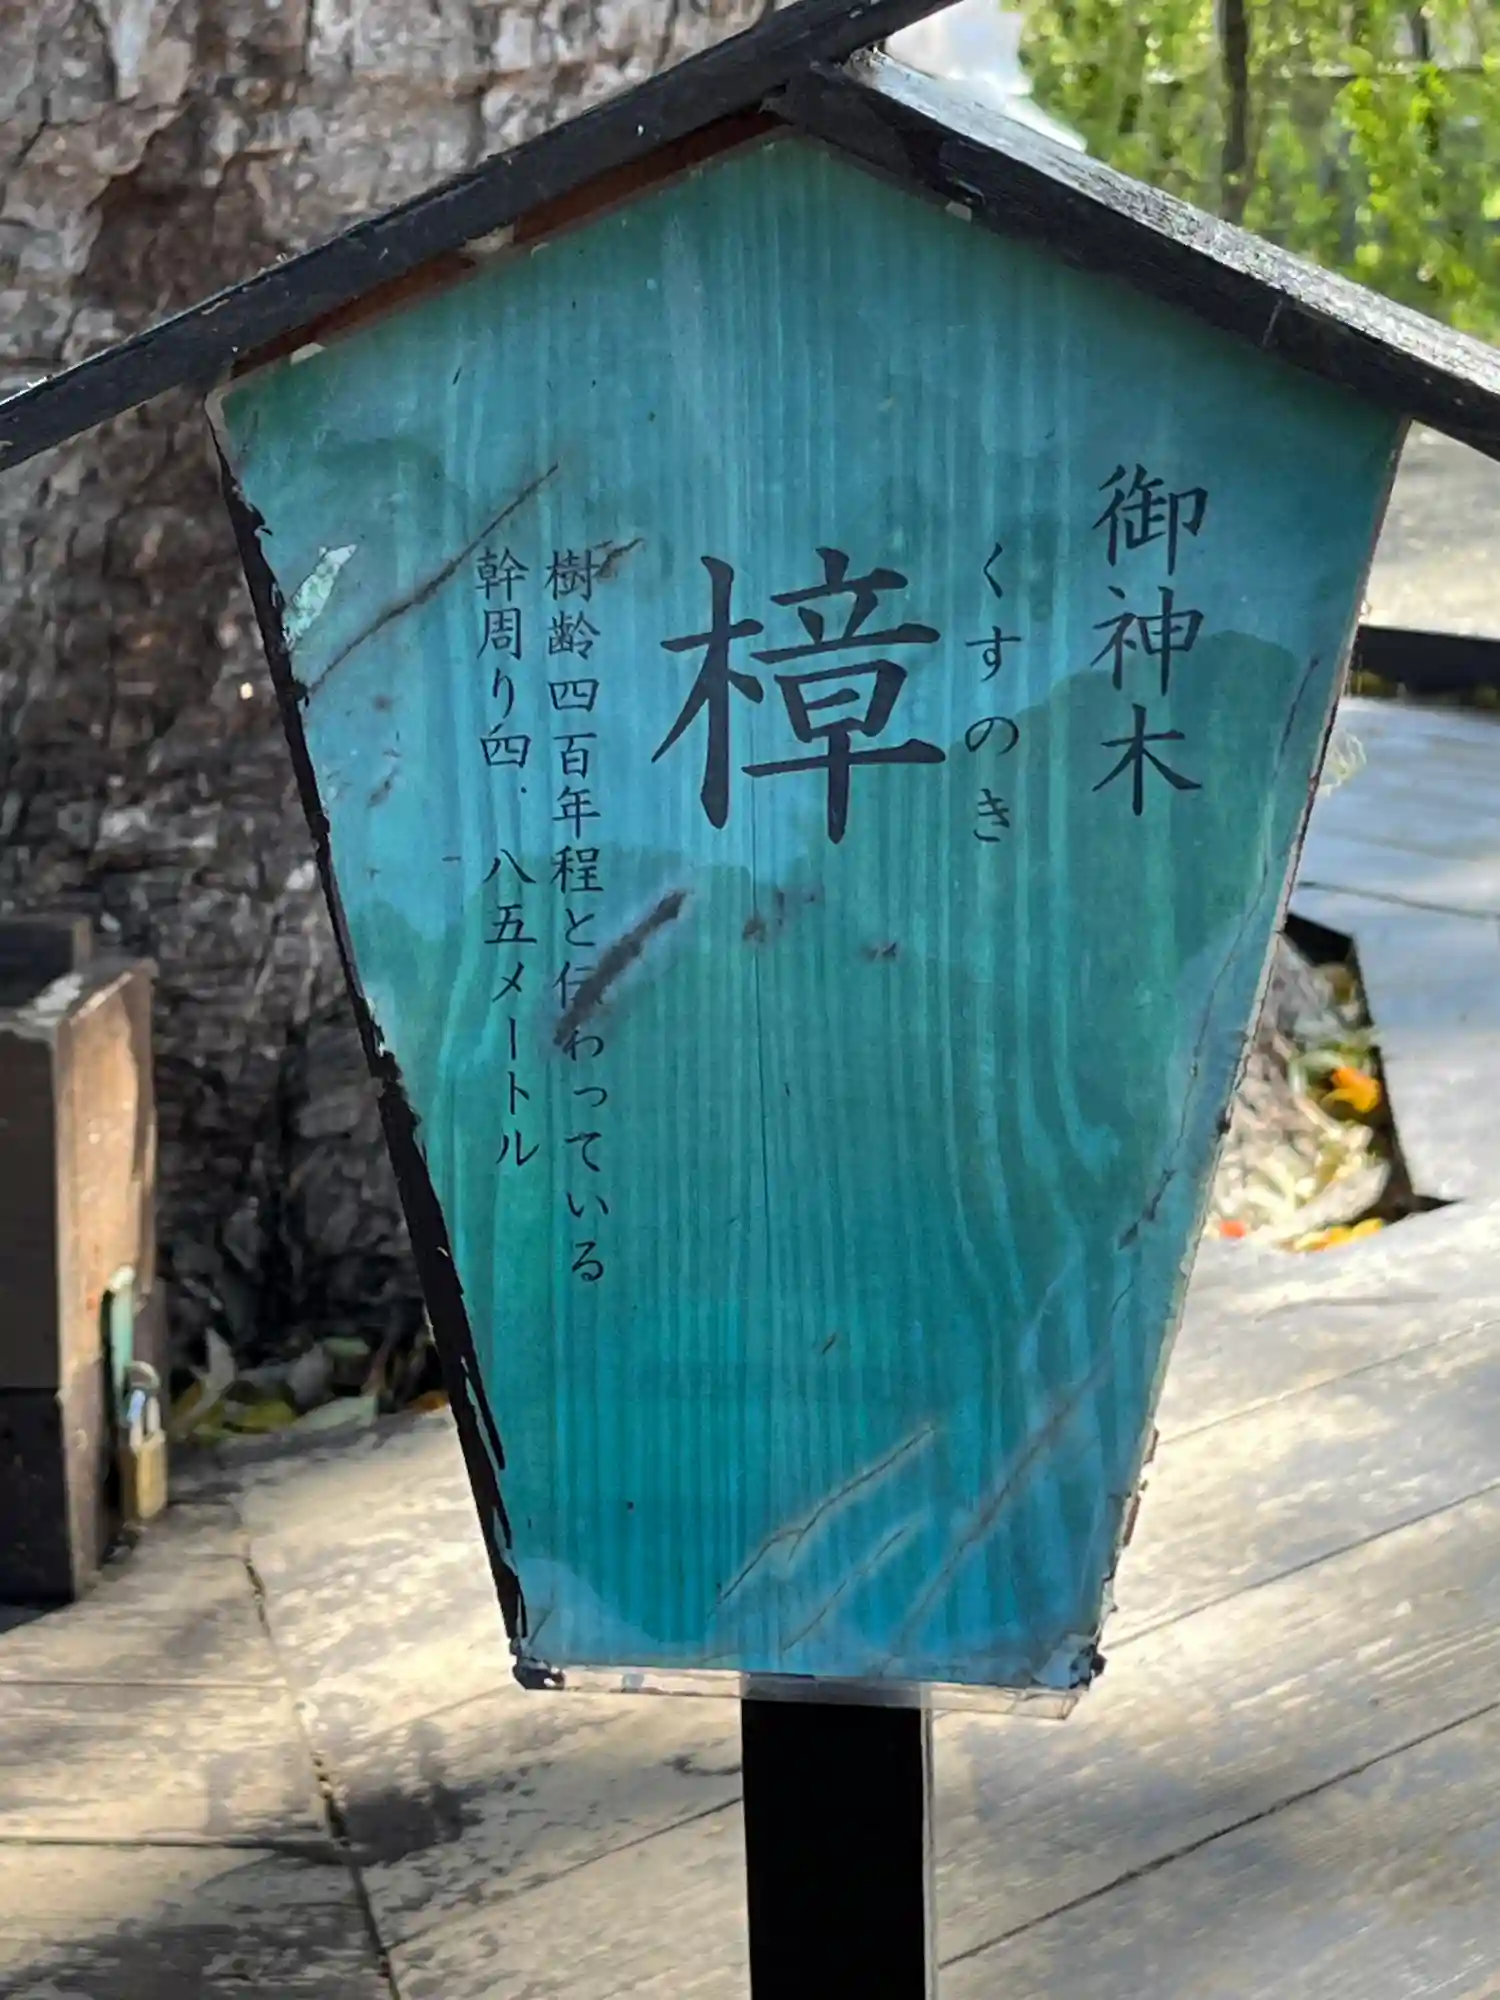 御神木
くすのき
樟
樹齢四百年程と伝わっている
幹周り四.八五メートル